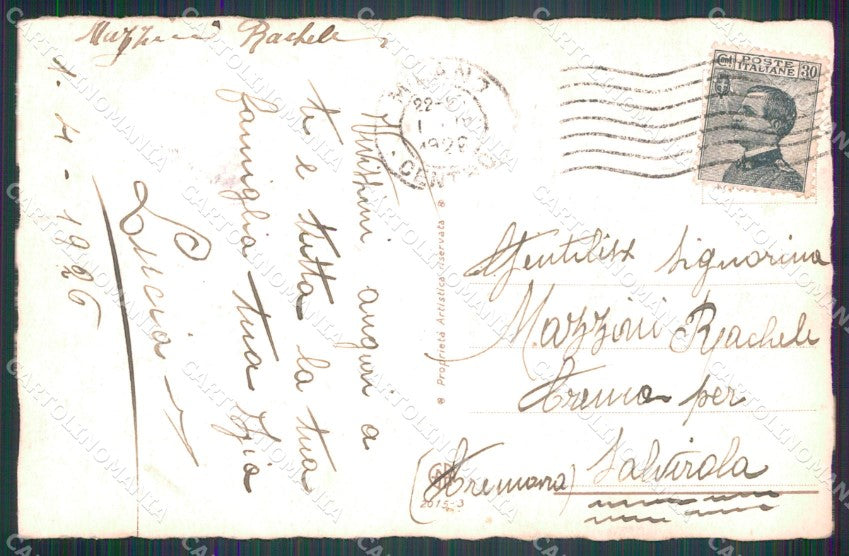 Mazzini Rachele
1-4-1926
Auguri a
te e tutta la tua
famiglia tua Zia
Lucia
MILANO
22-
1
1926
CENTRO
POSTE
ITALIANE
Cmi 30
Proprietà Artistica riservata
Gentilisx Signorina
Mazzini Rachele
Crema per
(Cremona) Salvirola
2615-3
CARTOLINOMANIA